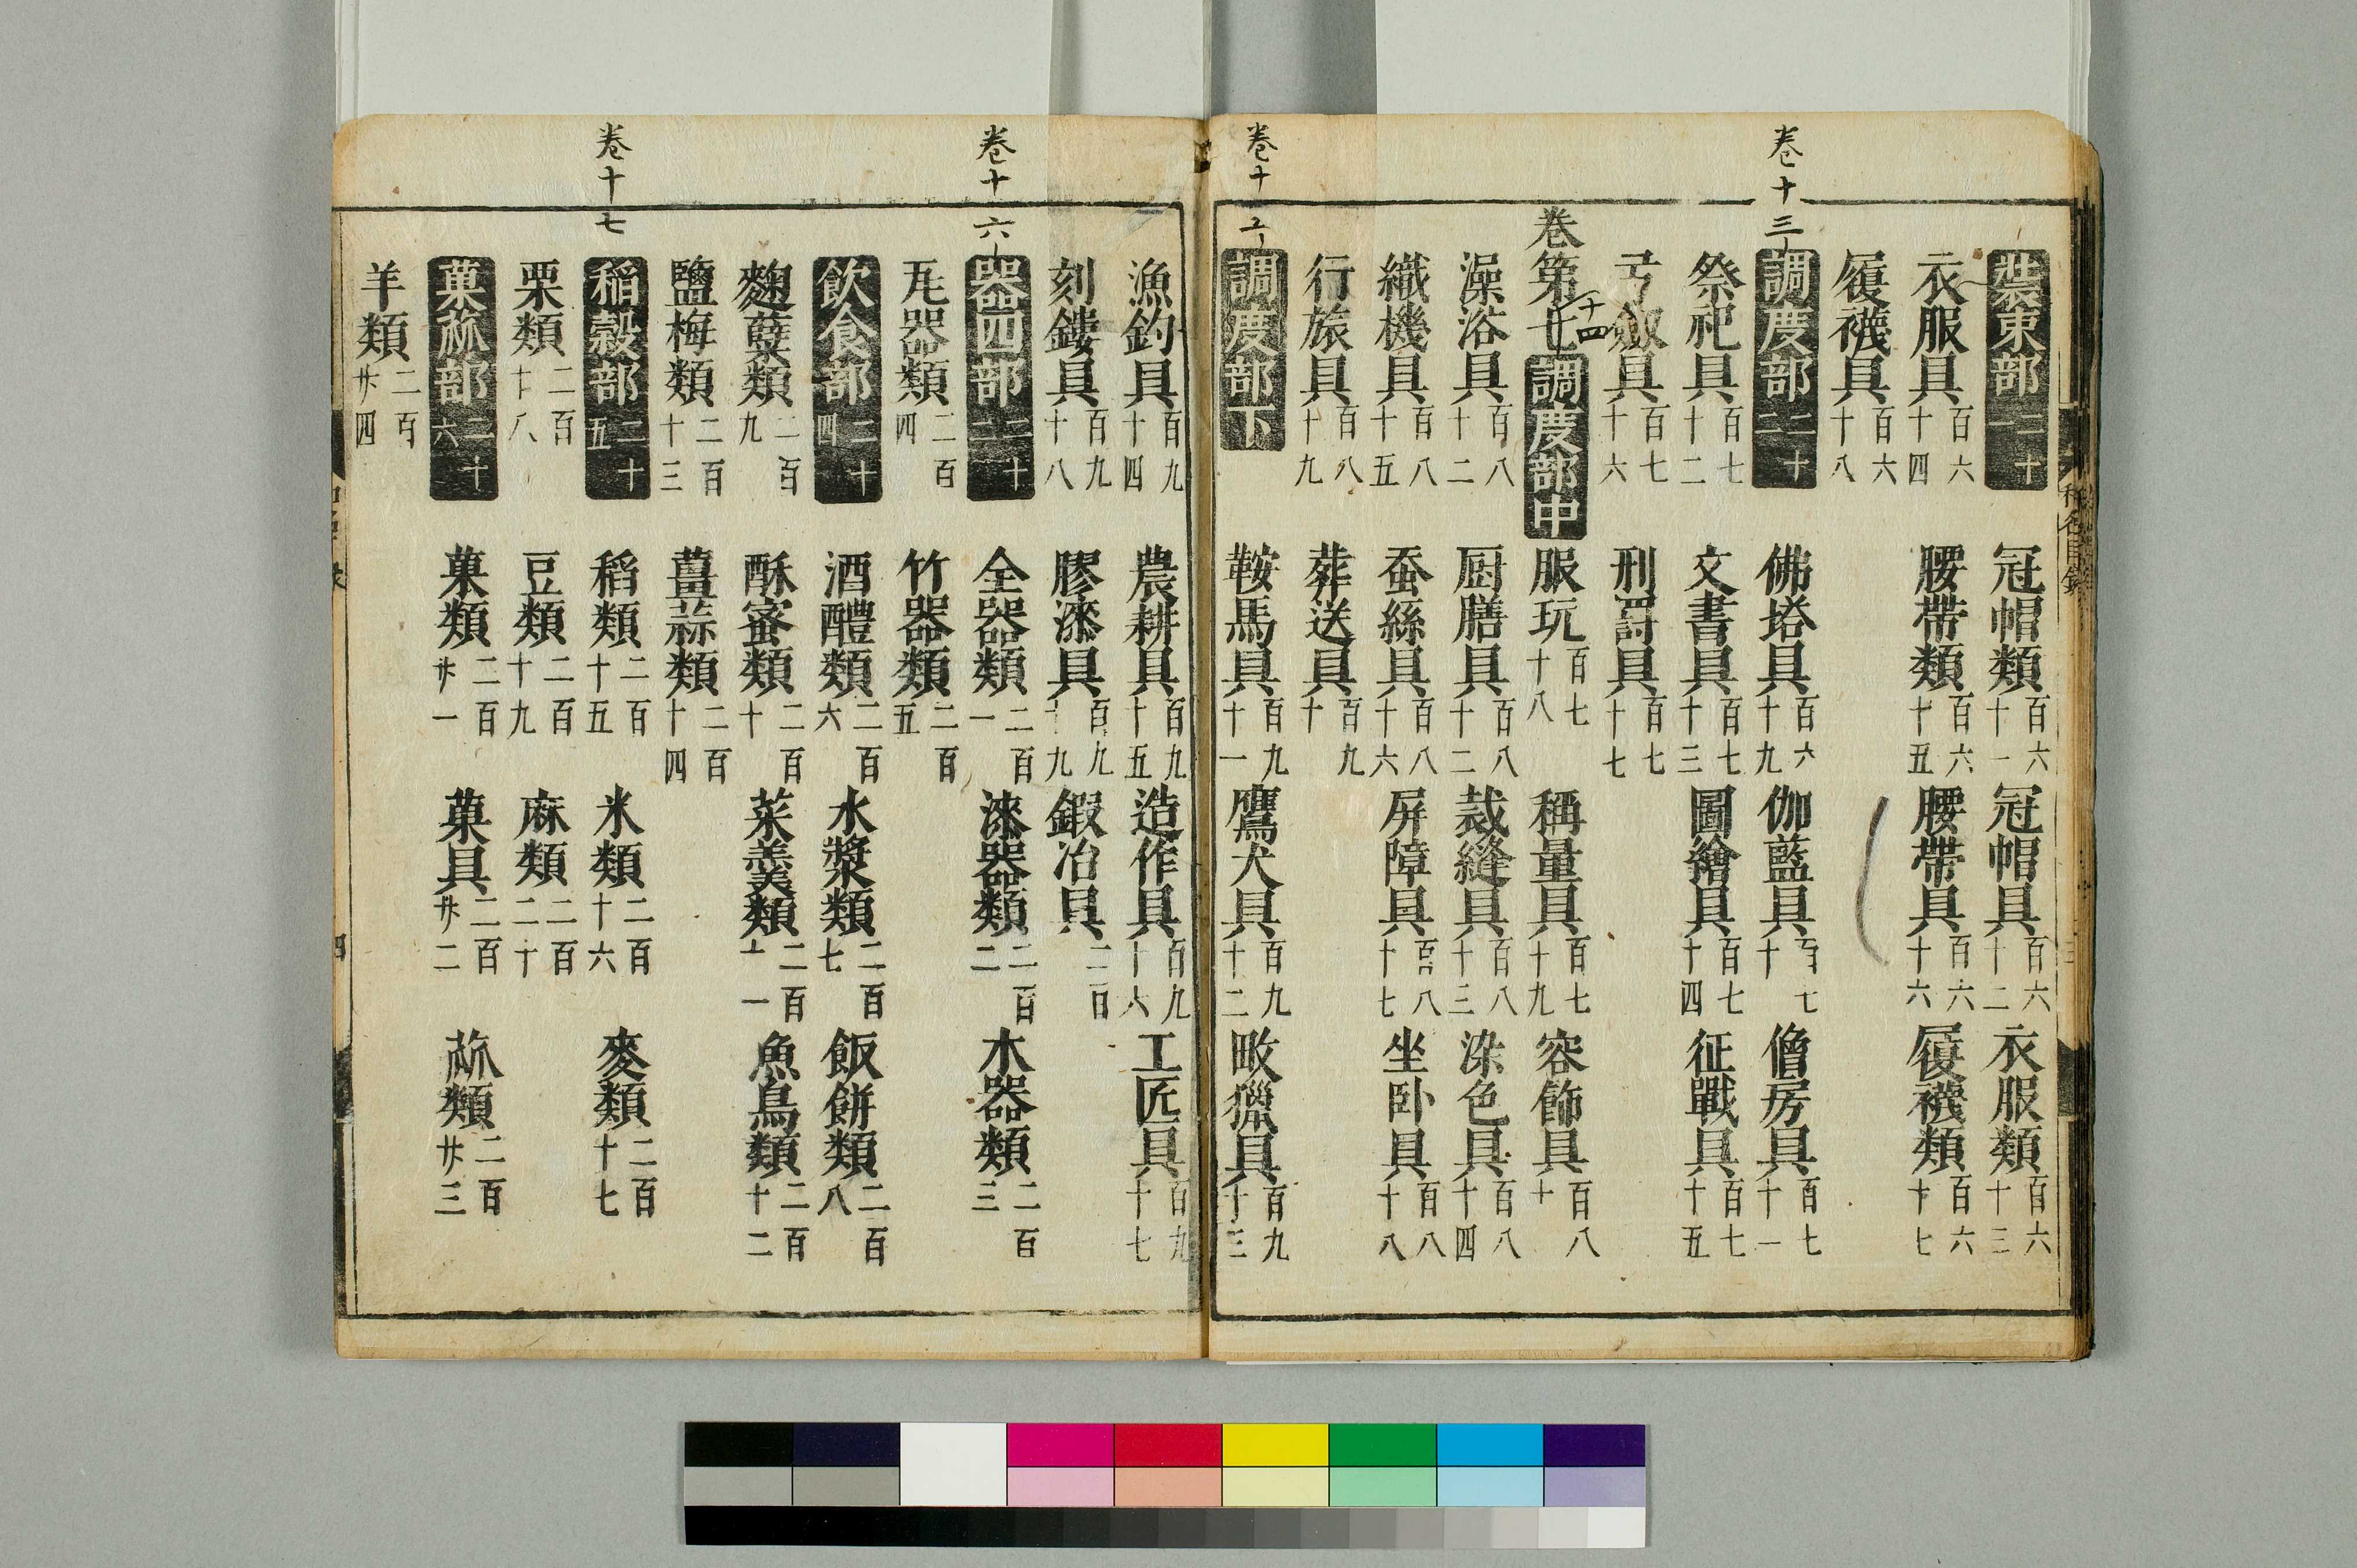 裝束部二十一 冠帽類百六十一 冠帽具百六十二 衣服類百六十三
衣服具百六十四 腰帶類百六十五 腰帶具百六十六 履襪類百六十七
履襪具百六十八
卷十三
調度部二十二 佛塔具百六十九 伽藍具百七十 僧房具百七十一
祭祀具百七十二 文書具百七十三 圖繪具百七十四 征戰具百七十五
弓劔具百七十六 刑罸具百七十七
卷第七 十四 調度部中 服玩百七十八 稱量具百七十九 容飾具百八十
澡浴具百八十二 厨膳具百八十二 裁縫具百八十三 染色具百八十四
織機具百八十五 蚕絲具百八十六 屏障具百八十七 坐卧具百八十八
行旅具百八十九 葬送具百九十
卷十五
調度部下 鞍馬具百九十一 鷹犬具百九十二 畋獵具百九十三
漁釣具百九十四 農耕具百九十五 造作具百九十六 工匠具百九十七
刻鏤具百九十八 膠漆具百九十九 鍜冶具二百
卷十六
器四部二十二 全器類二百一 漆器類二百二 木器類二百三
瓦器類二百四 竹器類二百五
飲食部二十四 酒醴類二百六 水漿類二百七 飯餅類二百八
麴蘖類二百九 酥蜜類二百十 菜羹類二百十一 魚鳥類二百十二
鹽梅類二百十三 薑蒜類二百十四
卷十七
稲穀部二十五 稻類二百十五 米類二百十六 麥類二百十七
粟類二百十八 豆類二百十九 麻類二百二十
菓蓏部二十六 菓類二百廿一 菓具二百廿二 蓏類二百廿三
羊類二百廿四